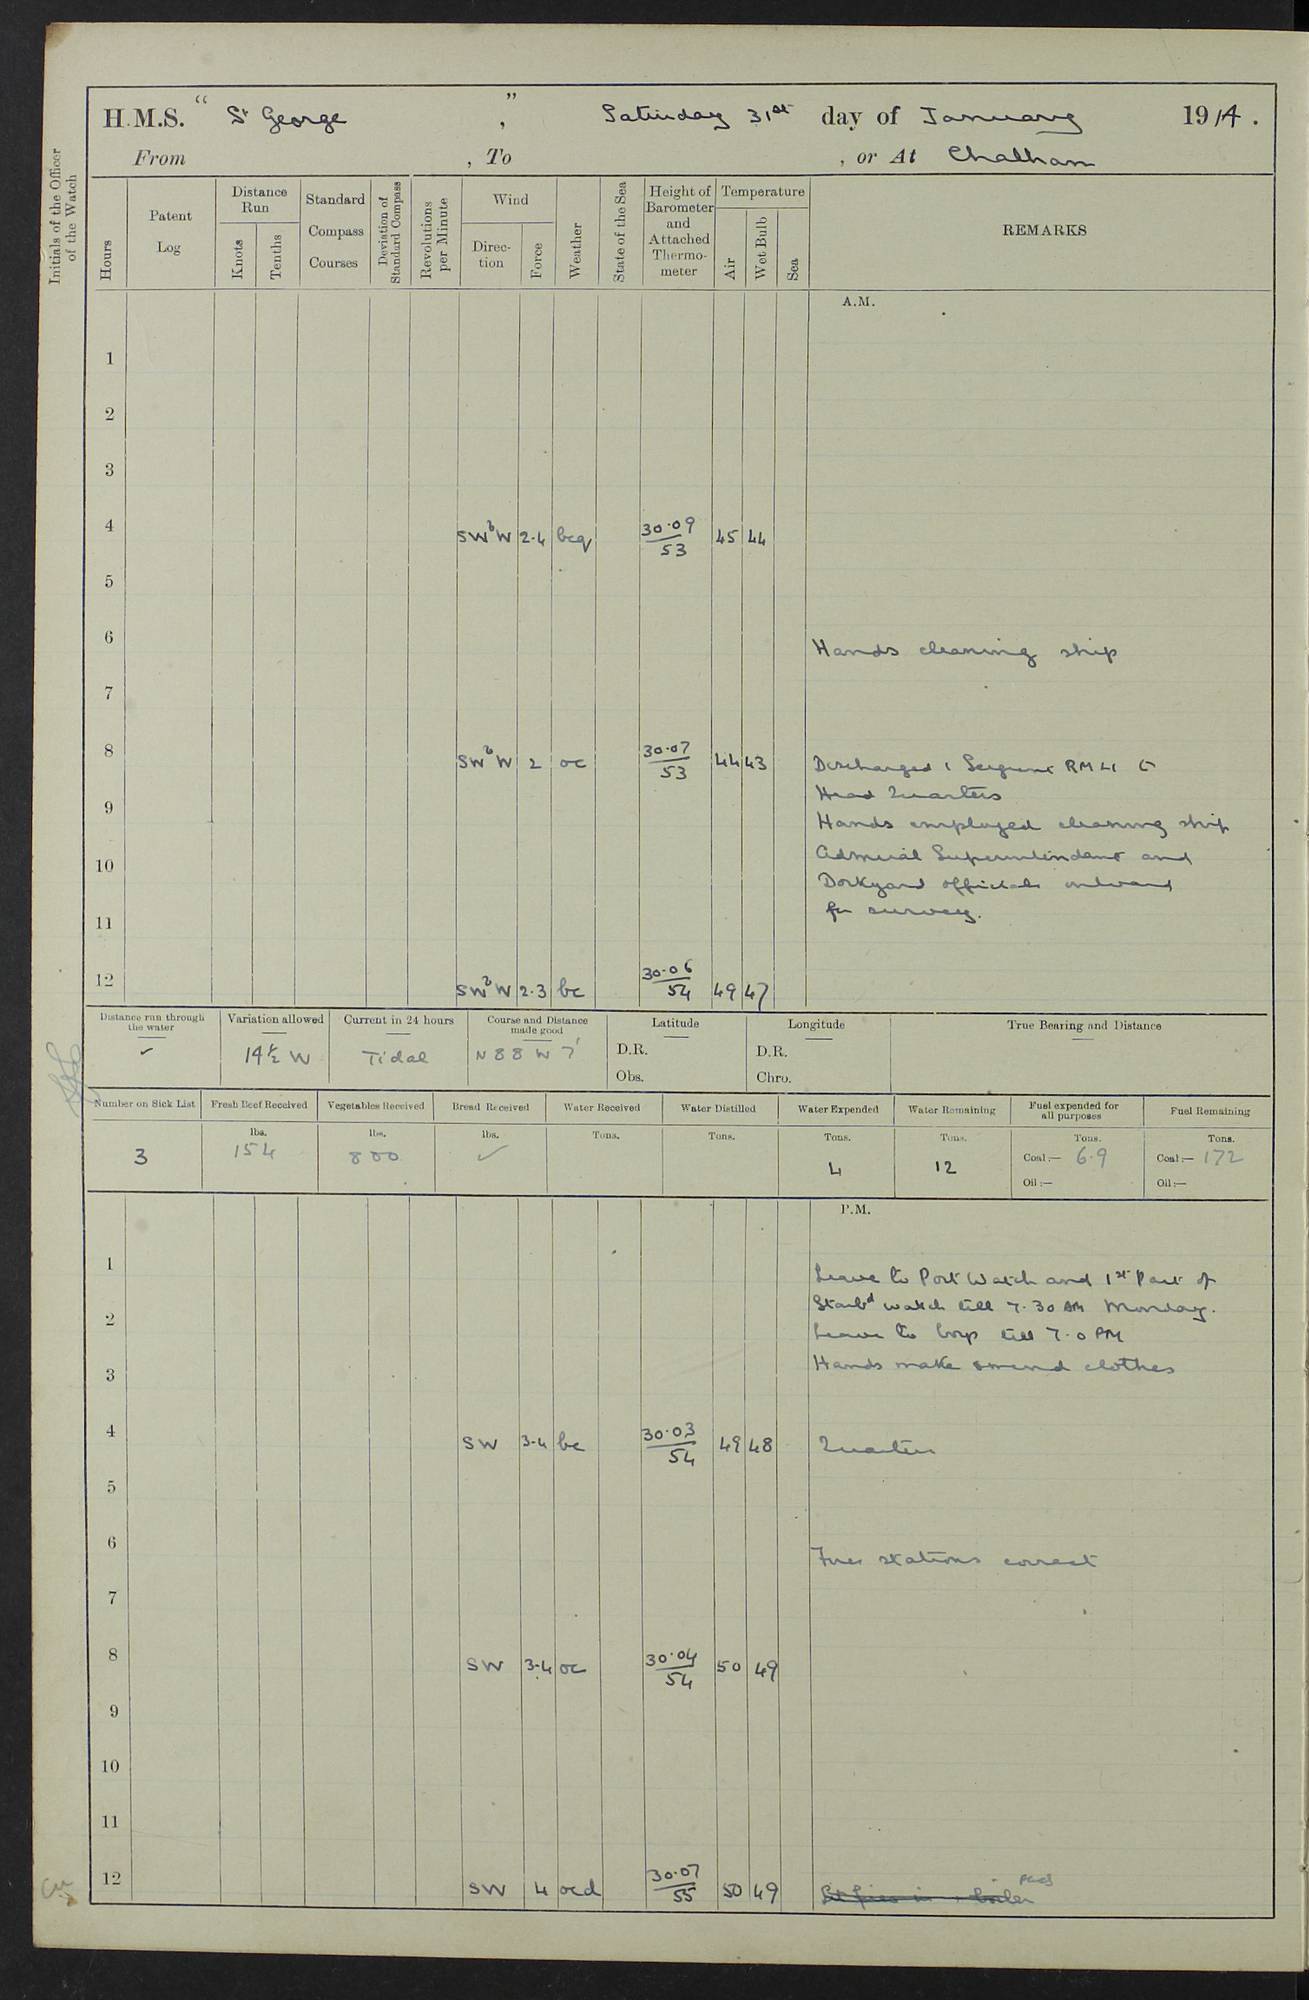 H.M.S. "St George", Saturday 31st day of January 1914.
From , To , or At Chatham
Initials of the Officer of the Watch
Hours
Patent Log
Distance Run
Knots
Tenths
Standard Compass Courses
Deviation of Standard Compass
Revolutions per Minute
Wind
Direc-tion
Force
Weather
State of the Sea
Height of Barometer and Attached Thermo-meter
Temperature
Air
Wet Bulb
Sea
REMARKS
A.M.
1
2
3
4 SWbW 2.4 bcq 30.09/53 45 44
5
6 Hands cleaning ship
7
8 SWbW 2 oc 30.07/53 44 43 Discharged 1 Sergeant RMLI to
Head Quarters
9 Hands employed cleaning ship
10 Admiral Superintendant and
Dockyard officials onboard
11 for survey.
12 SWbW 2.3 bc 30.06/54 49 47
Distance run through the water
Variation allowed
Current in 24 hours
Course and Distance made good
Latitude
Longitude
True Bearing and Distance
✓ 14½ W Tidal N 88 W 7' D.R. D.R.
Obs. Chro.
Number on Sick List
Fresh Beef Received
Vegetables Received
Bread Received
Water Received
Water Distilled
Water Expended
Water Remaining
Fuel expended for all purposes
Fuel Remaining
lbs. lbs. lbs. Tons. Tons. Tons. Tons. Tons. Tons.
3 154 800 ✓ 4 12 Coal:— 6.9 Coal:— 172
Oil:— Oil:—
P.M.
1 Leave to Port Watch and 1st Part of
2 Starbd watch till 7.30 AM Monday.
Leave to boys till 7.0 PM
3 Hands make & mend clothes
4 SW 3-4 bc 30.03/54 49 48 Quarters
5
6 Fire stations correct
7
8 SW 3-4 oc 30.04/54 50 49
9
10
11
12 SW 4 ocd 30.07/55 50 49 boiler